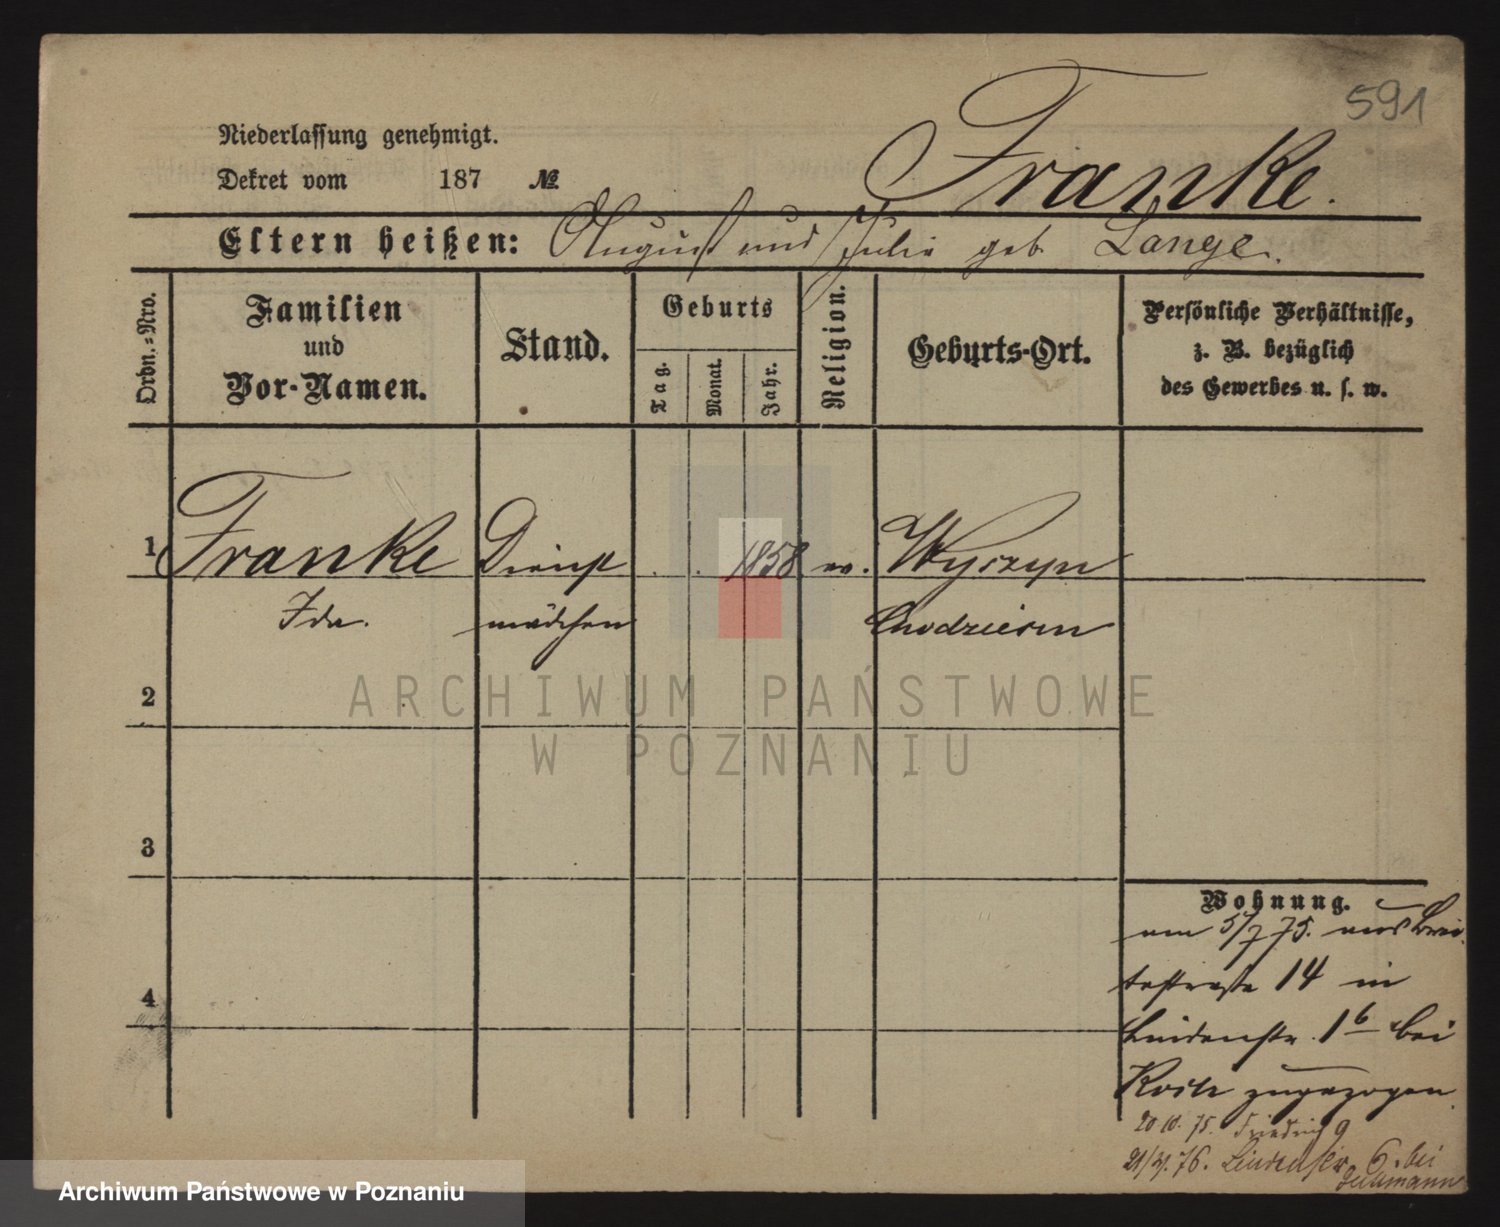 591
Franke.
Niederlassung genehmigt.
Dekret vom 187 №
Eltern heißen: August und Julie geb. Lange.
Ordn.-Nro.
Familien und Vor-Namen.
Stand.
Geburts
Tag.
Monat.
Jahr.
Religion.
Geburts-Ort.
Persönliche Verhältnisse,
z. B. bezüglich
des Gewerbes u. s. w.
1 Franke Dienst 1858 ev. Wyszyn
Ida. mädchen Chodziesen
2
3
4
Wohnung.
am 5/7 75. aus Brei
testraße 14 in
Lindenstr. 1b bei
zugezogen
20 10. 75. Friedrich 9
76. Lindenstr. 6. bei
ARCHIWUM PAŃSTWOWE
W POZNANIU
Archiwum Państwowe w Poznaniu